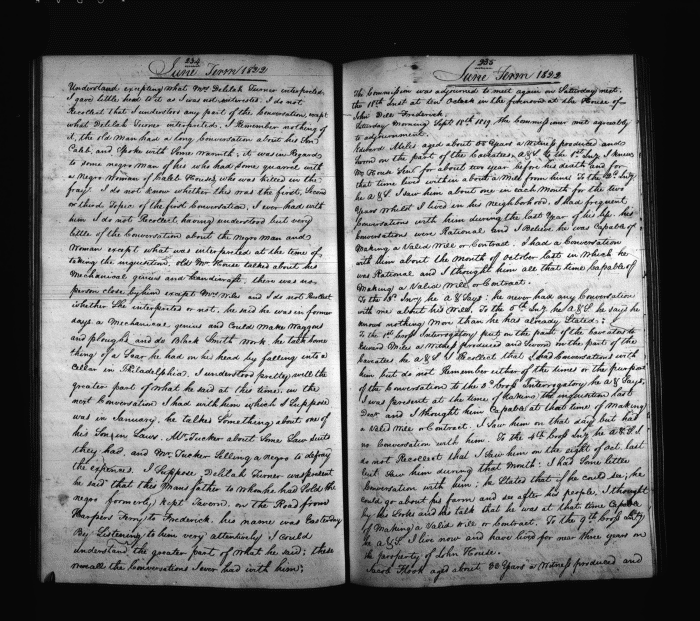 234
June Term 1822
Understand excepting what Mrs Delilah Turner interpreted.
I gave little heed to it as I was not interested. I do not
Recollect that I understood any part of the Conversation, except
what Delilah Turner interpreted. I Remember nothing of
it, the old Man had a long Conversation about his Son
Caleb, and Spoke with Some warmth; it was in Regard
to some negro Man of his who had some quarrel with
a Negro Woman of Caleb House's who was killed in the
fray. I do not know whether this was the first, Second
or third Topic of the first Conversation, I ever had with
him I do not Recollect having understood but very
little of the Conversation about the negro Man and
Woman except what was interpreted at the time of
taking the inquisition, old Mr House talked about his
Mechanical genius and handicraft, there was no
person close by him except Mrs Miles and I do not Recollect
whether She interpreted or not, he said he was in former
days a Mechanical genius and Could Make Waggons
and ploughs and do Black Smith Work, he talk some
thing of a Scar he had on his head by falling into a
Cellar in Philadelphia. I understood pretty well the
greater part of what he said at this time, in the
next Conversation I had with him which I Suppose
was in January, he talked Something about one of
his Sons in Laws, Mr Tucker about Some Law Suits
they had, and Mr Tucker Selling a negro to defray
the expences. I Suppose Delilah Turner was present
he said that this Mans father to whom he had Sold the
negro formerly kept Tavern, on the Road from
Harpers Ferry to Frederick, his name was Easterday
By Listening to him very attentively I Could
understand the greater part of what he said; these
were all the Conversations I ever had with him;
235
June Term 1822
The Commission was adjourned to meet again on Saturday next
the 18th Inst at ten Oclock in the forenoon at the House of
John Dill Frederick.
Saturday Morning Sept 18th 1819, the Commissioner met agreeably
to adjournment.
Edward Miles aged about 55 Years a Witness produced and
Sworn on the part of the Caveators, A & S. To the 1st Inty I knew
Mr House Senr for about two year before his death and for
that time lived within about a Mile from him: To the 2d Inty
he A & S. I saw him about once in each Month for the two
Years whilst I lived in his Neighborhood. I had frequent
Conversations with him during the last Year of his life his
Conversations were Rational and I Believe he was Capable of
Making a Valid Will or Contract. I had a Conversation
with him about the Month of October last in which he
was Rational and I thought him all that time Capable of
Making a Valid Will or Contract.
To the 3d Inty he A & Says: he never had any Conversation
with one about his Will. To the 5th Inty he A & S. he says he
knows nothing More than he has already Stated:
To the 1st Cross Interrogatory put on the part of the Caveatees to
Edward Miles a Witness produced and Sworn on the part of the
Caveators he A & S I Recollect that I had Conversations with
him but do not Remember either of the times or the purpose
of the Conversation to the 3d Cross Interrogatory he A & Says,
I was present at the time of taking the inquisition last
Decr and I thought him Capable at that time of Making
a Valid Will or Contract. I saw him on that day but had
no Conversation with him. To the 4th Cross Inty he A & S I
do not Recollect that I saw him on the eight of Oct. last
but Saw him during that Month: I had Some little
Conversation with him; he Stated that if he could see, he
could go about his farm and see after his people, I thought
by his Looks and his talk that he was at that time Capable
of Making a Valid Will or Contract. To the 9th Cross Inty
he A & S I live now and have lived for near three years on
the property of John House.
Jacob Flook aged about 38 Years a Witness produced and